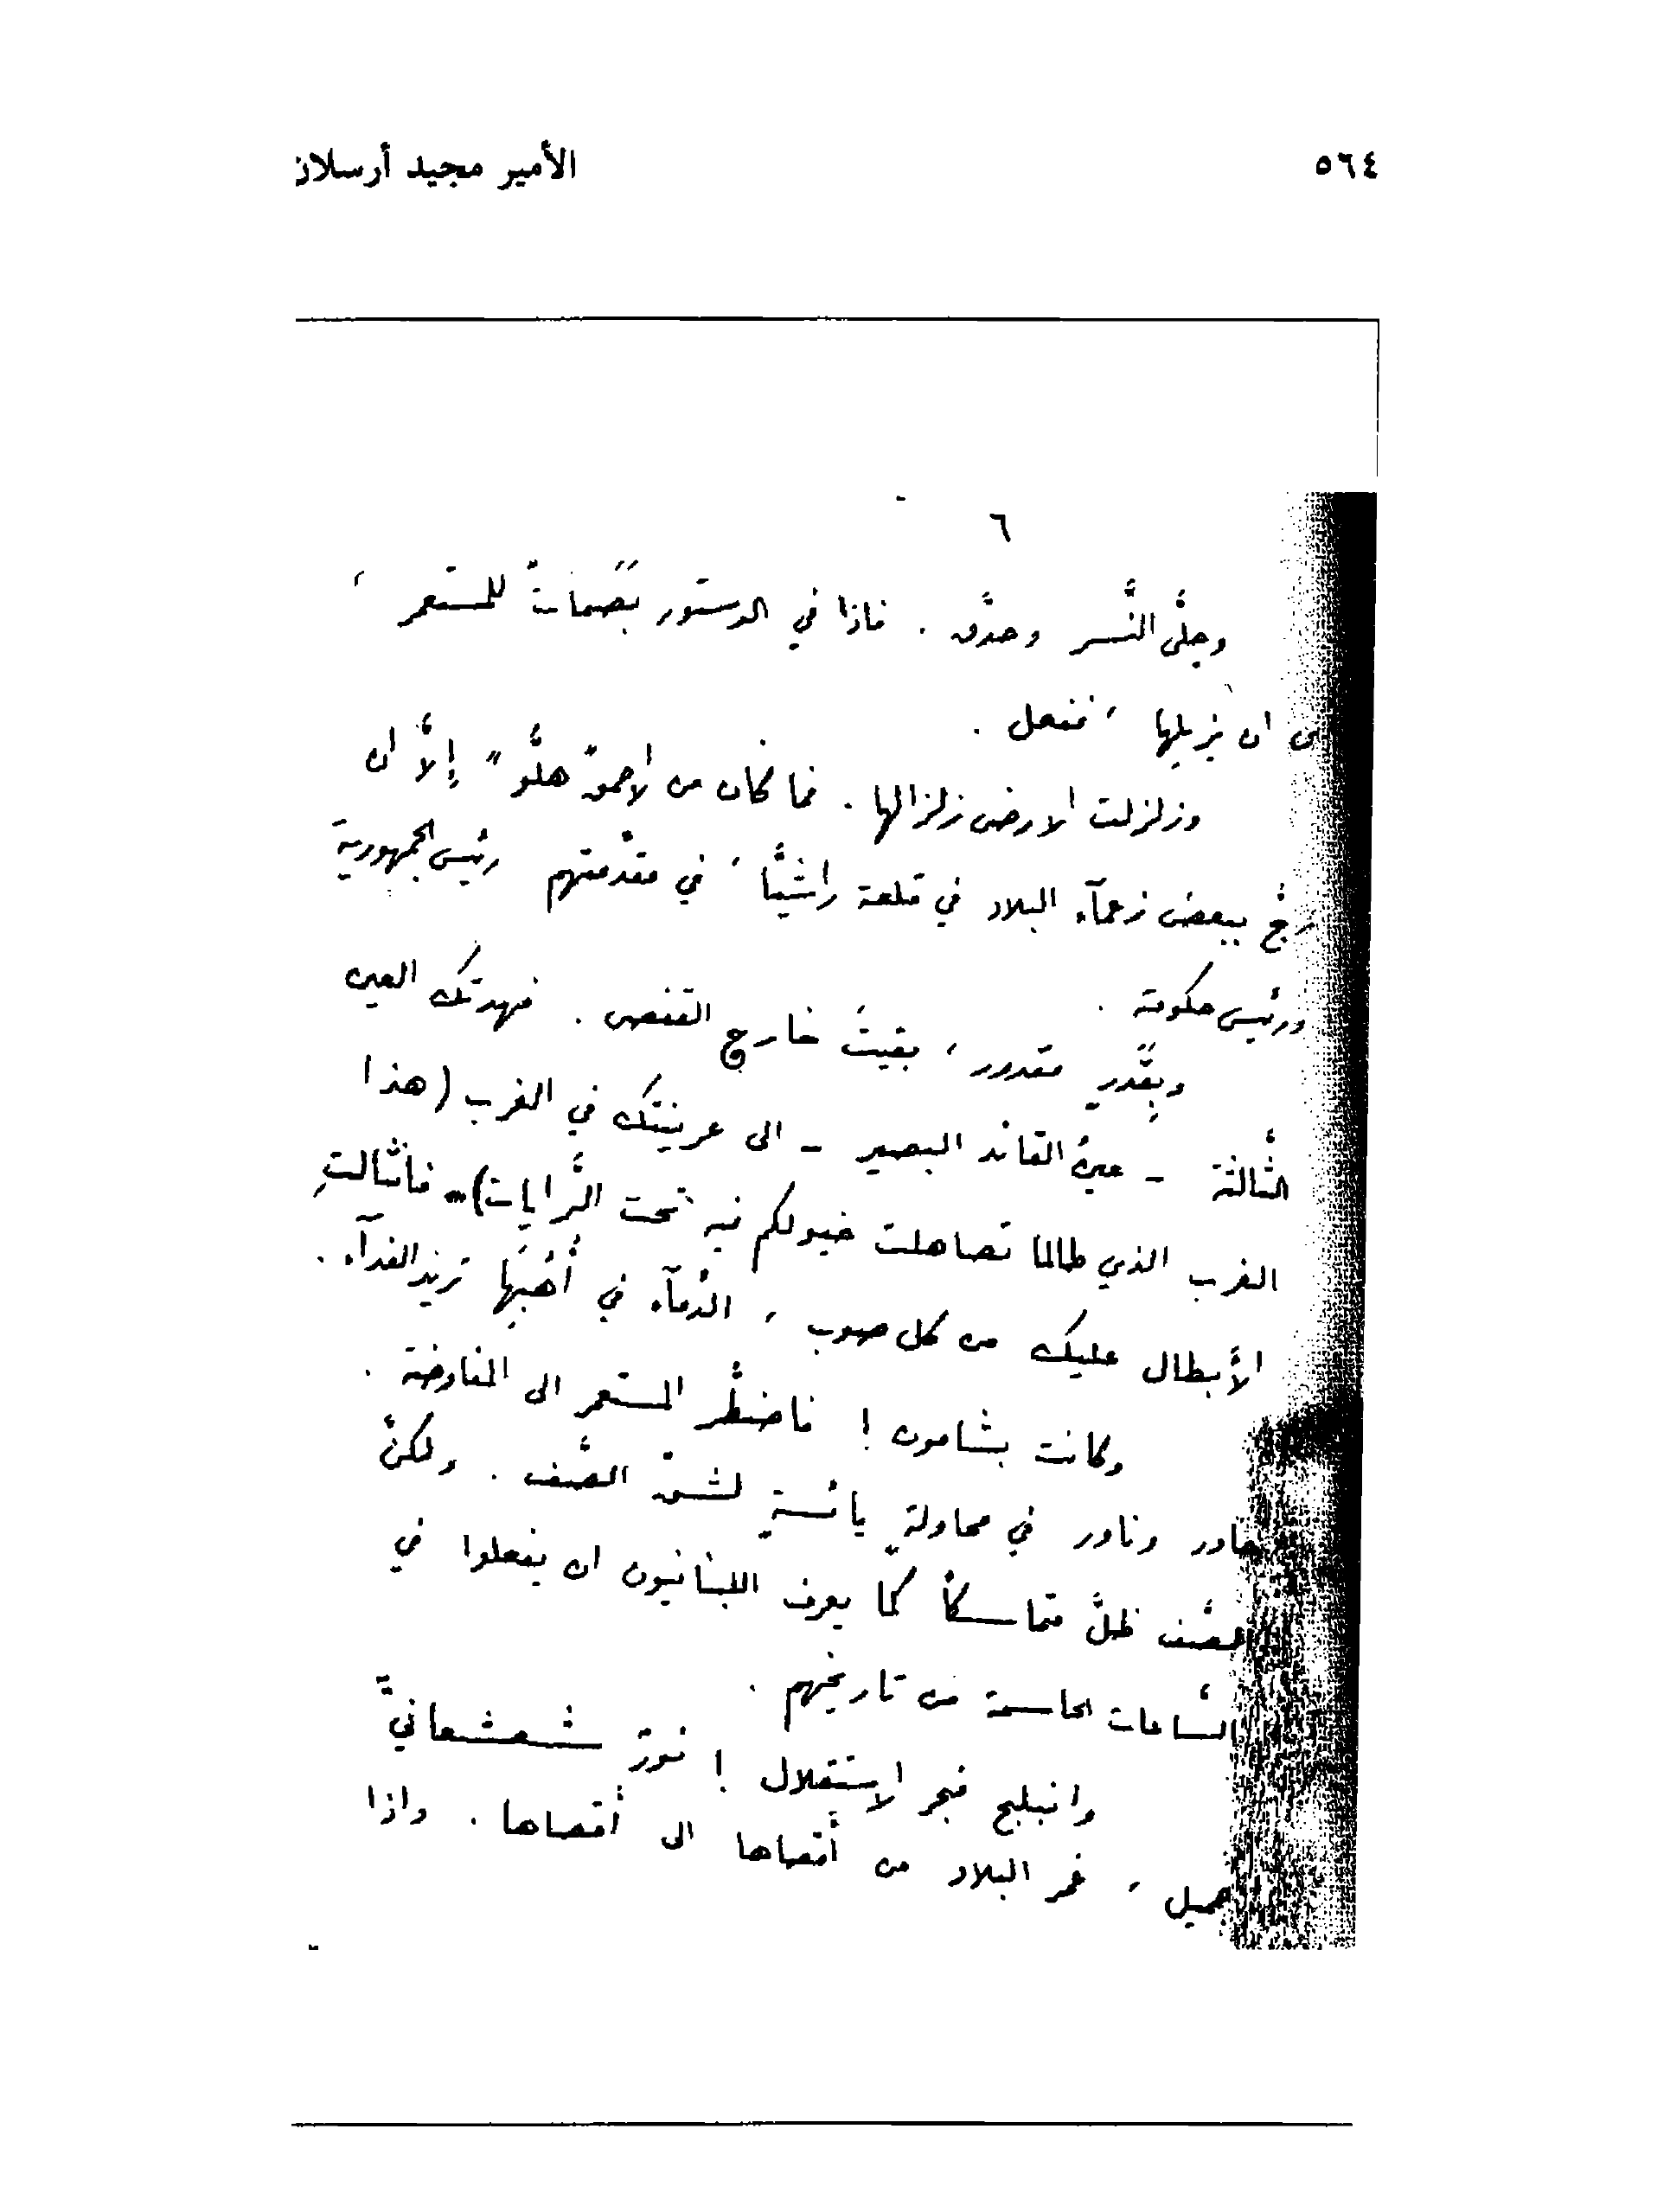 ٥٦٤
الأمير مجيد أرسلان
٦
وجلَّى النَّسر وحدَّق . فاذا في الدستور بَصَماتٌ للمستعمر ،
ان يزيلها ، ففعل .
وزلزلت الارض زلزالها . فما كان من الاحمق " هلُّو " إلاَّ ان
زجَّ ببعض زعمآء البلاد في قلعة راشيَّا ، في مقدّمتهم رئيس الجمهورية
ورئيس حكومته .
وبِقَدَرٍ مقدور ، بقيتَ خارج القفص . فهدتك العين
الثَّالثة - عينُ القائد البصير - الى عرينتك في الغرب (هذا
الغرب الذي طالما تصاهلت خيولكم فيه تحت الرَّايات) ... فانثالتِ
الأبطال عليك من كل صوب ، الدِّمآء في أُهُبِها تريد الفدآء .
وكانت بشامون ! فاضطُّر المستعمر الى المفاوضة .
وناور في محاولةٍ يائسةٍ لشقّ الصَّف . ولكنَّ
الصَّف ظلَّ متماسكاً كما يعرف اللبنانيون ان يفعلوا في
السَّاعات الحاسمة من تاريخهم .
وانبلج فجر الاستقلال ! نورٌ شعشعانيٌّ
جميل ، غمر البلاد من أقصاها الى أقصاها . واذا